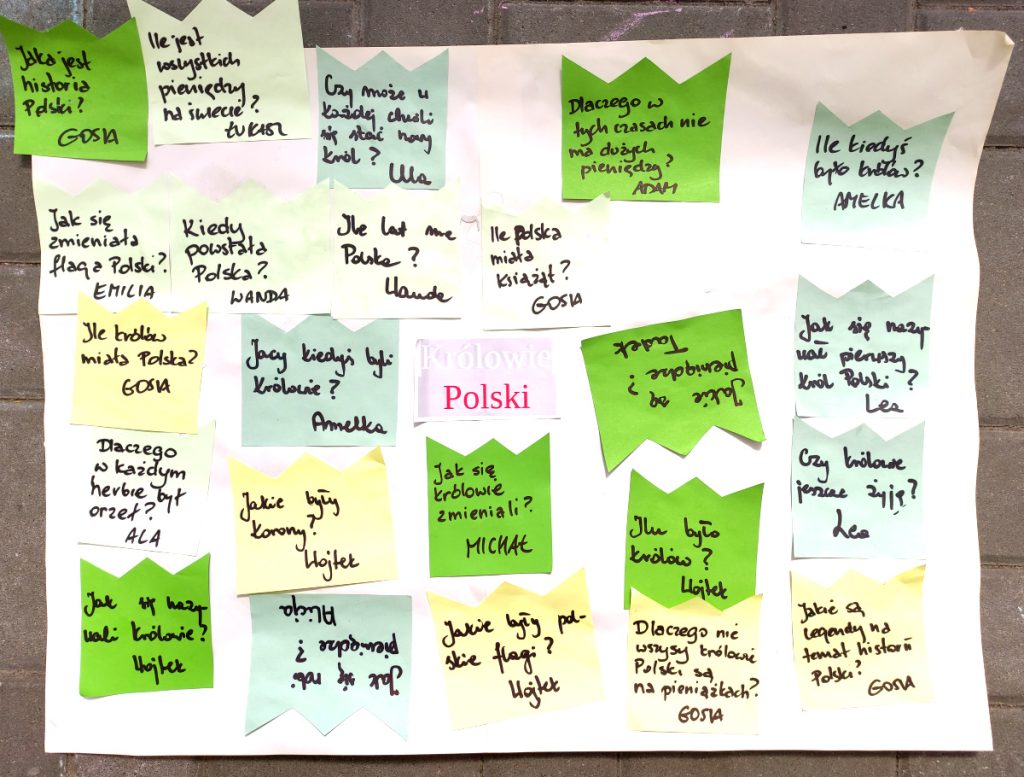 Jaka jest
historia
Polski?
GOSIA
Ile jest
wszystkich
pieniędzy
na świecie?
ŁUKASZ
Czy może w
każdej chwili
się stać nowy
król?
Ula
Dlaczego w
tych czasach nie
ma dużych
pieniędzy?
ADAM
Ile kiedyś
było królów?
AMELKA
Jak się
zmieniała
flaga Polski?
EMILIA
Kiedy
powstała
Polska?
WANDA
Ile lat ma
Polska?
Wanda
Ile Polska
miała
książąt?
GOSIA
Ile królów
miała Polska?
GOSIA
Jacy kiedyś byli
królowie?
Amelka
Królowie
Polski
Jakie są
pieniądze?
Tadek
Jak się nazy
wał pierwszy
król Polski?
Lea
Dlaczego
w każdym
herbie był
orzeł?
ALA
Jakie były
korony?
Wojtek
Jak się
królowie
zmieniali?
MICHAŁ
Ilu było
królów?
Wojtek
Czy królowie
jeszcze żyją?
Lea
Jak się nazy
wali królowie?
Wojtek
Jak się robi
pieniądze?
Alicja
Jakie były pol-
skie flagi?
Wojtek
Dlaczego nie
wszysy królowie
Polski są
na pieniążkach?
GOSIA
Jakie są
legendy na
temat historii
Polski?
GOSIA